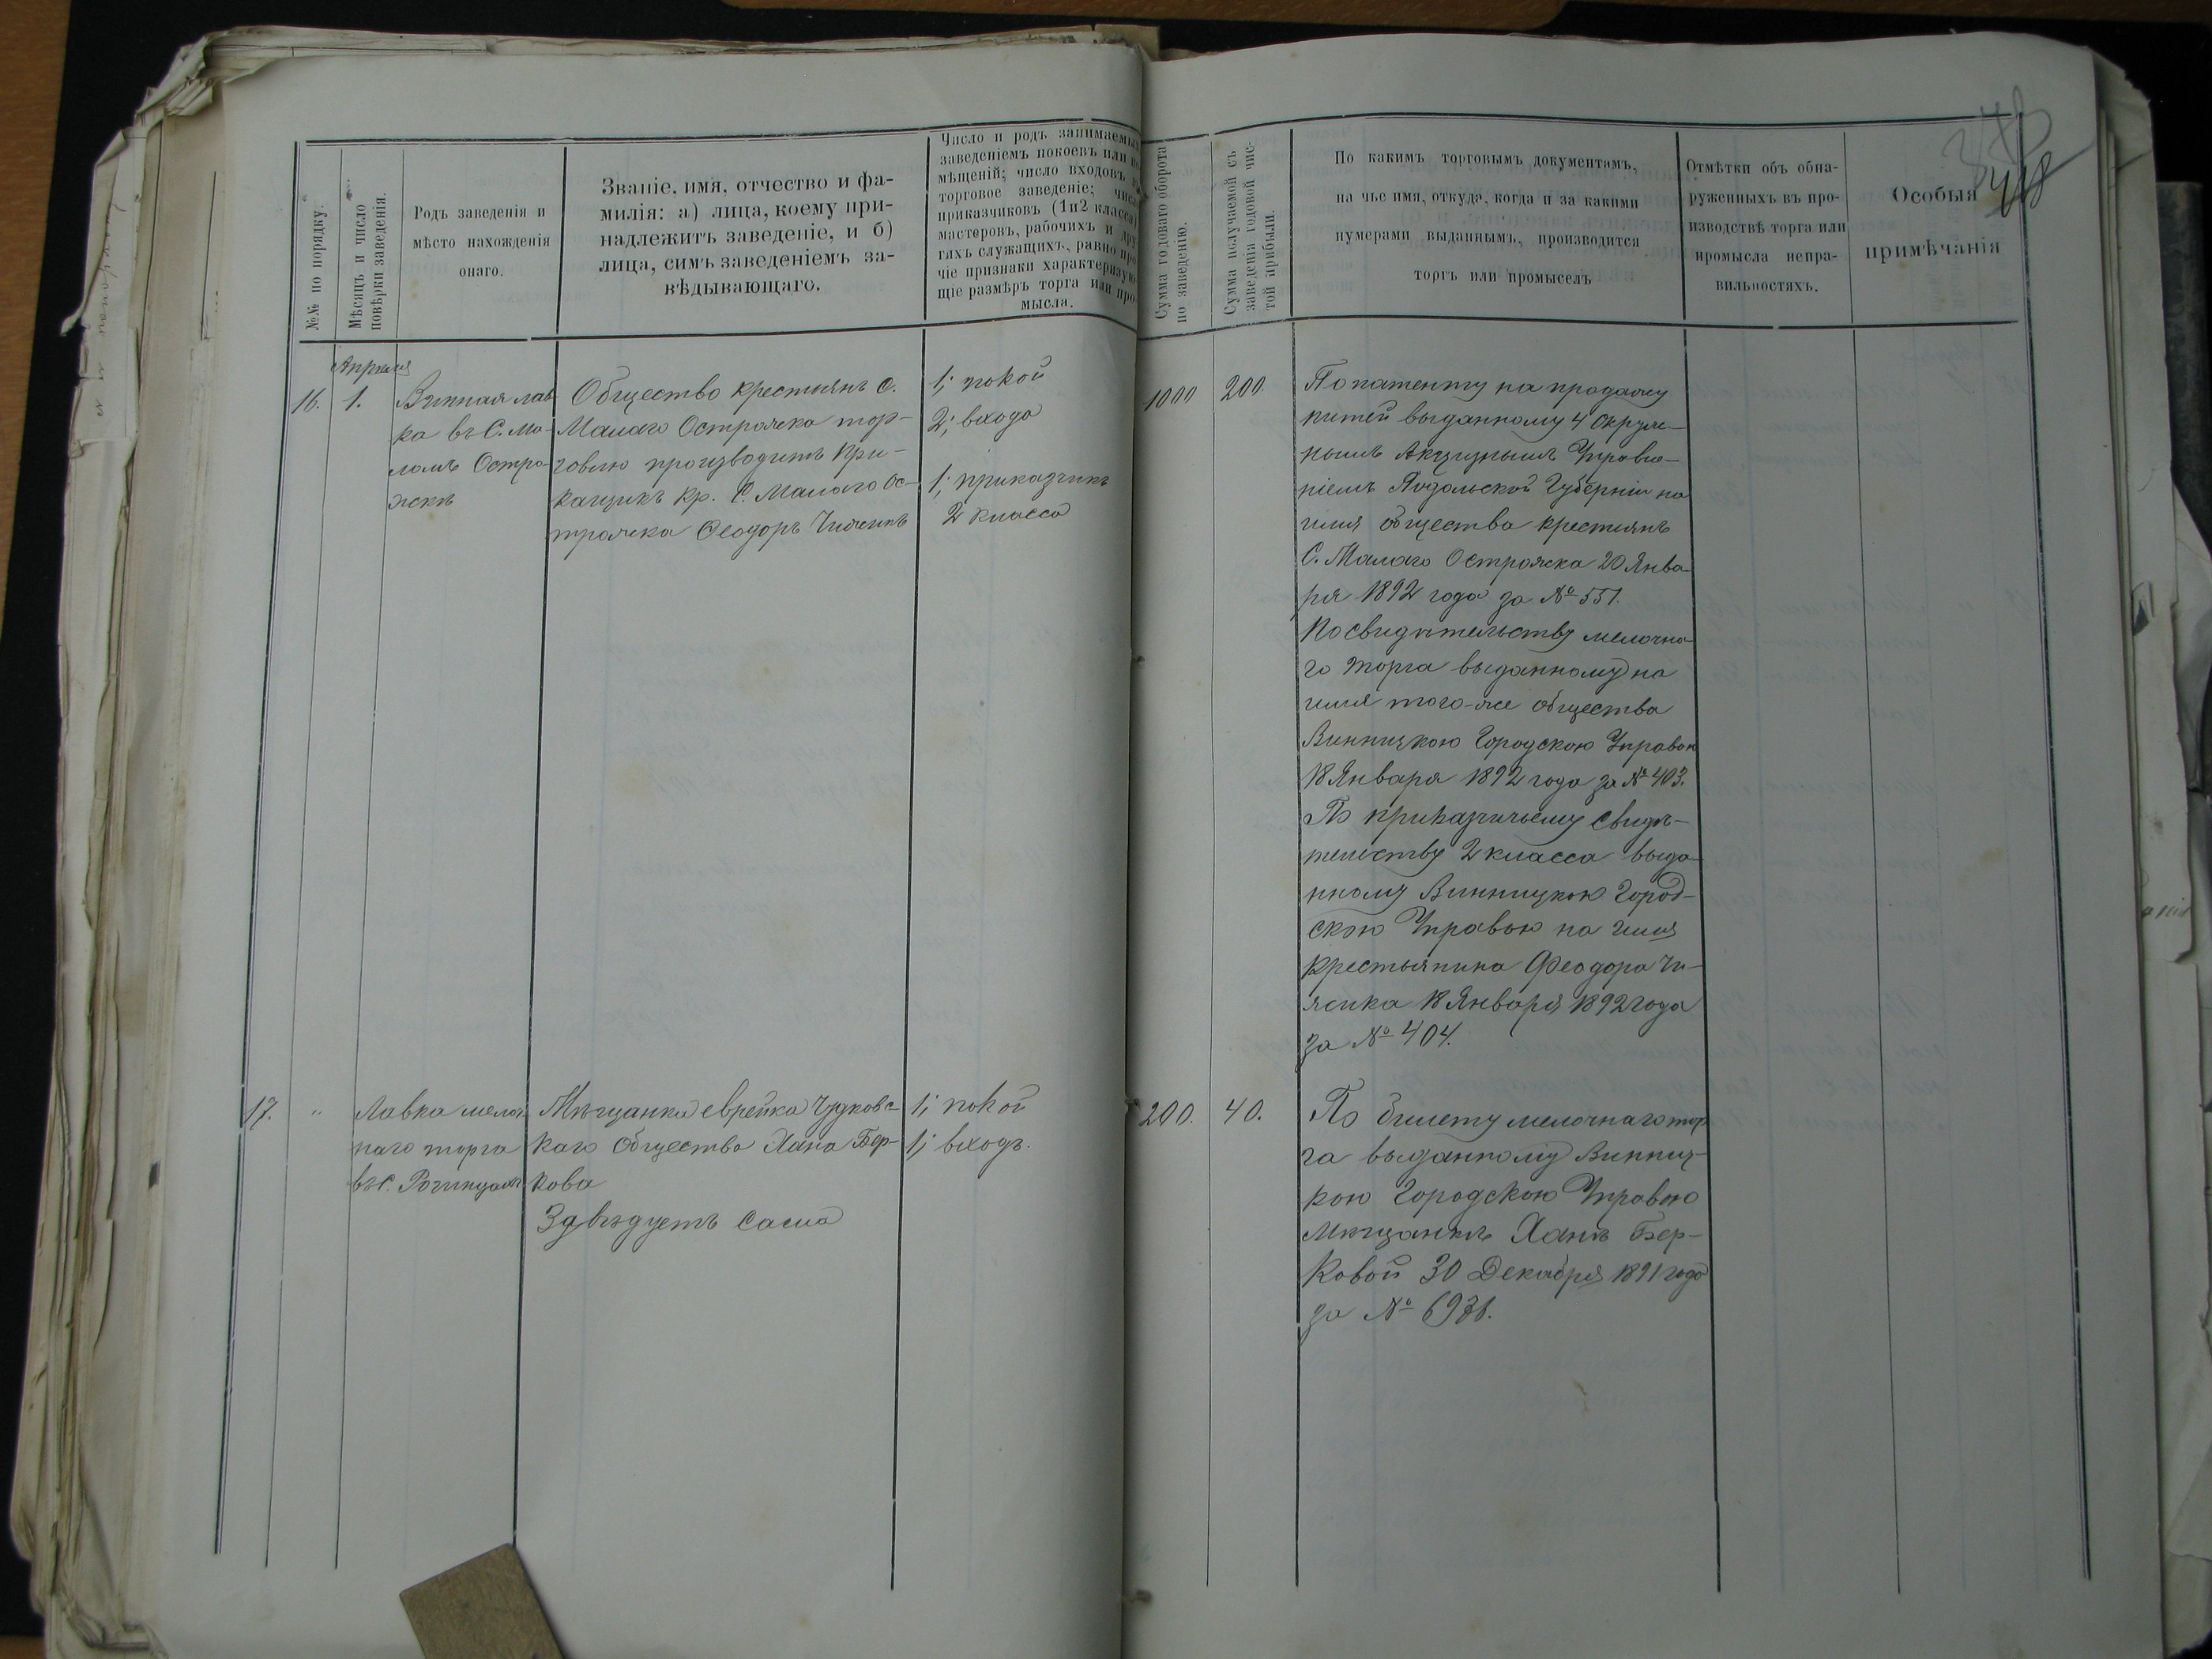 №№ по порядку.
Мѣсяцъ и число
повѣрки заведенія.
Родъ заведенія и
мѣсто нахожденія
онаго.
Званіе, имя, отчество и фа-
милія: а) лица, коему при-
надлежитъ заведеніе, и б)
лица, симъ заведеніемъ за-
вѣдывающаго.
Число и родъ занимаемыхъ
заведеніемъ покоевъ или по
мѣщеній; число входовъ въ
торговое заведеніе; число
приказчиковъ (1 и 2 класса)
мастеровъ, рабочихъ и дру
гихъ служащихъ, равно про
чіе признаки характеризую
щіе размѣръ торга или про
мысла.
Сумма годоваго оборота
по заведенію.
Сумма получаемой съ
заведенія годовой чис-
той прибыли.
По какимъ торговымъ документамъ,
на чье имя, откуда, когда и за какими
нумерами выданнымъ, производится
торгъ или промыселъ
Отмѣтки объ обна-
руженныхъ въ про-
изводствѣ торга или
промысла непра-
вильностяхъ.
Особыя
примѣчанія
Апрѣля
16.
1.
Винная лав
ка въ С. Ма-
ломъ Остро-
жкѣ
Общество крестьянъ с.
Малаго Острожка тор-
говлю производитъ при-
кащикъ кр. С. Малаго Ос-
трожка Ѳеодоръ Чижикъ
1; покой
2; входа
1; приказчикъ
2 класса
1000
200.
По патенту на продажу
питей выданному 4 Окруж-
нымъ Акцизнымъ Управле-
ніемъ Подольской Губерніи на
имя общества крестьянъ
С. Малаго Острожка 20 Янва-
ря 1892 года за № 551.
По свидѣтельству мелочна-
го торга выданному на
имя того-же общества
Винницкою Городскою Управою
18 Января 1892 года за № 403.
По приказчичьему свидѣ-
тельству 2 класса выда-
нному Винницкою Город-
скою Управою на имя
крестьянина Феодора Чи-
жика 18 Января 1892 года
за № 404.
17.
"
Лавка мелоч
наго торга
въ С.
Мѣщанка еврейка Чудковс-
каго Общества Хана Бер-
кова
Завѣдуетъ сама
1; покой
1; входъ.
200.
40.
По билету мелочнаго тор
га выданному Винниц-
кою Городскою Управою
Мѣщанкѣ Ханѣ Бер-
ковой 30 Декабря 1891 года
за №